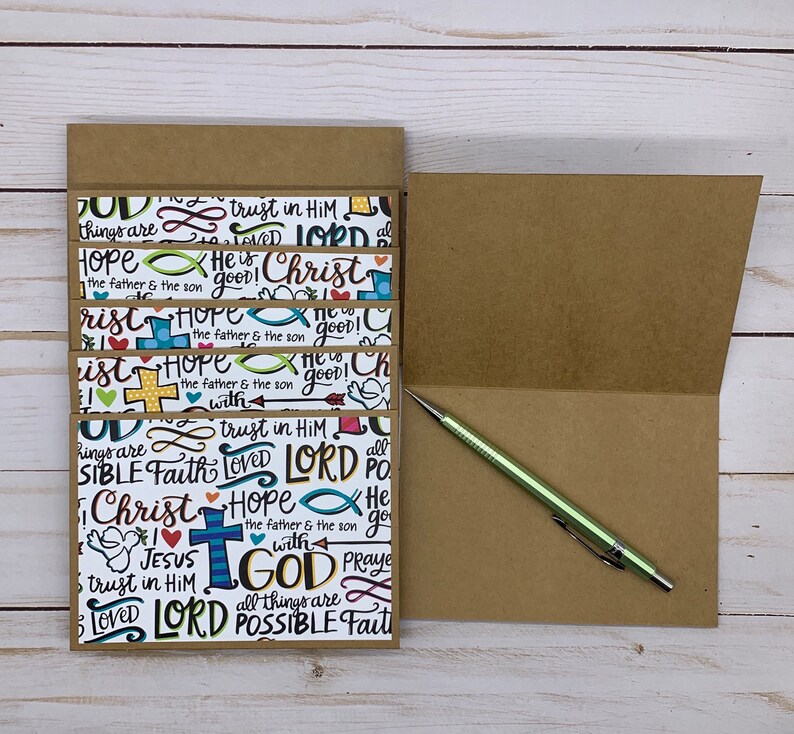 GOD trust in HiM
things are LOVED LORD
HOPE He is good! Christ
the father & the son
Christ HOPE He is good!
the father & the son
HOPE He is good!
the father & the son
with
GOD trust in HiM
things are all
SIBLE Faith LOVED LORD POS
Christ HOPE He
the father & the son
I JESUS with GOD PRAYE
trust in HiM
LOVED LORD all things are POSSIBLE Faith